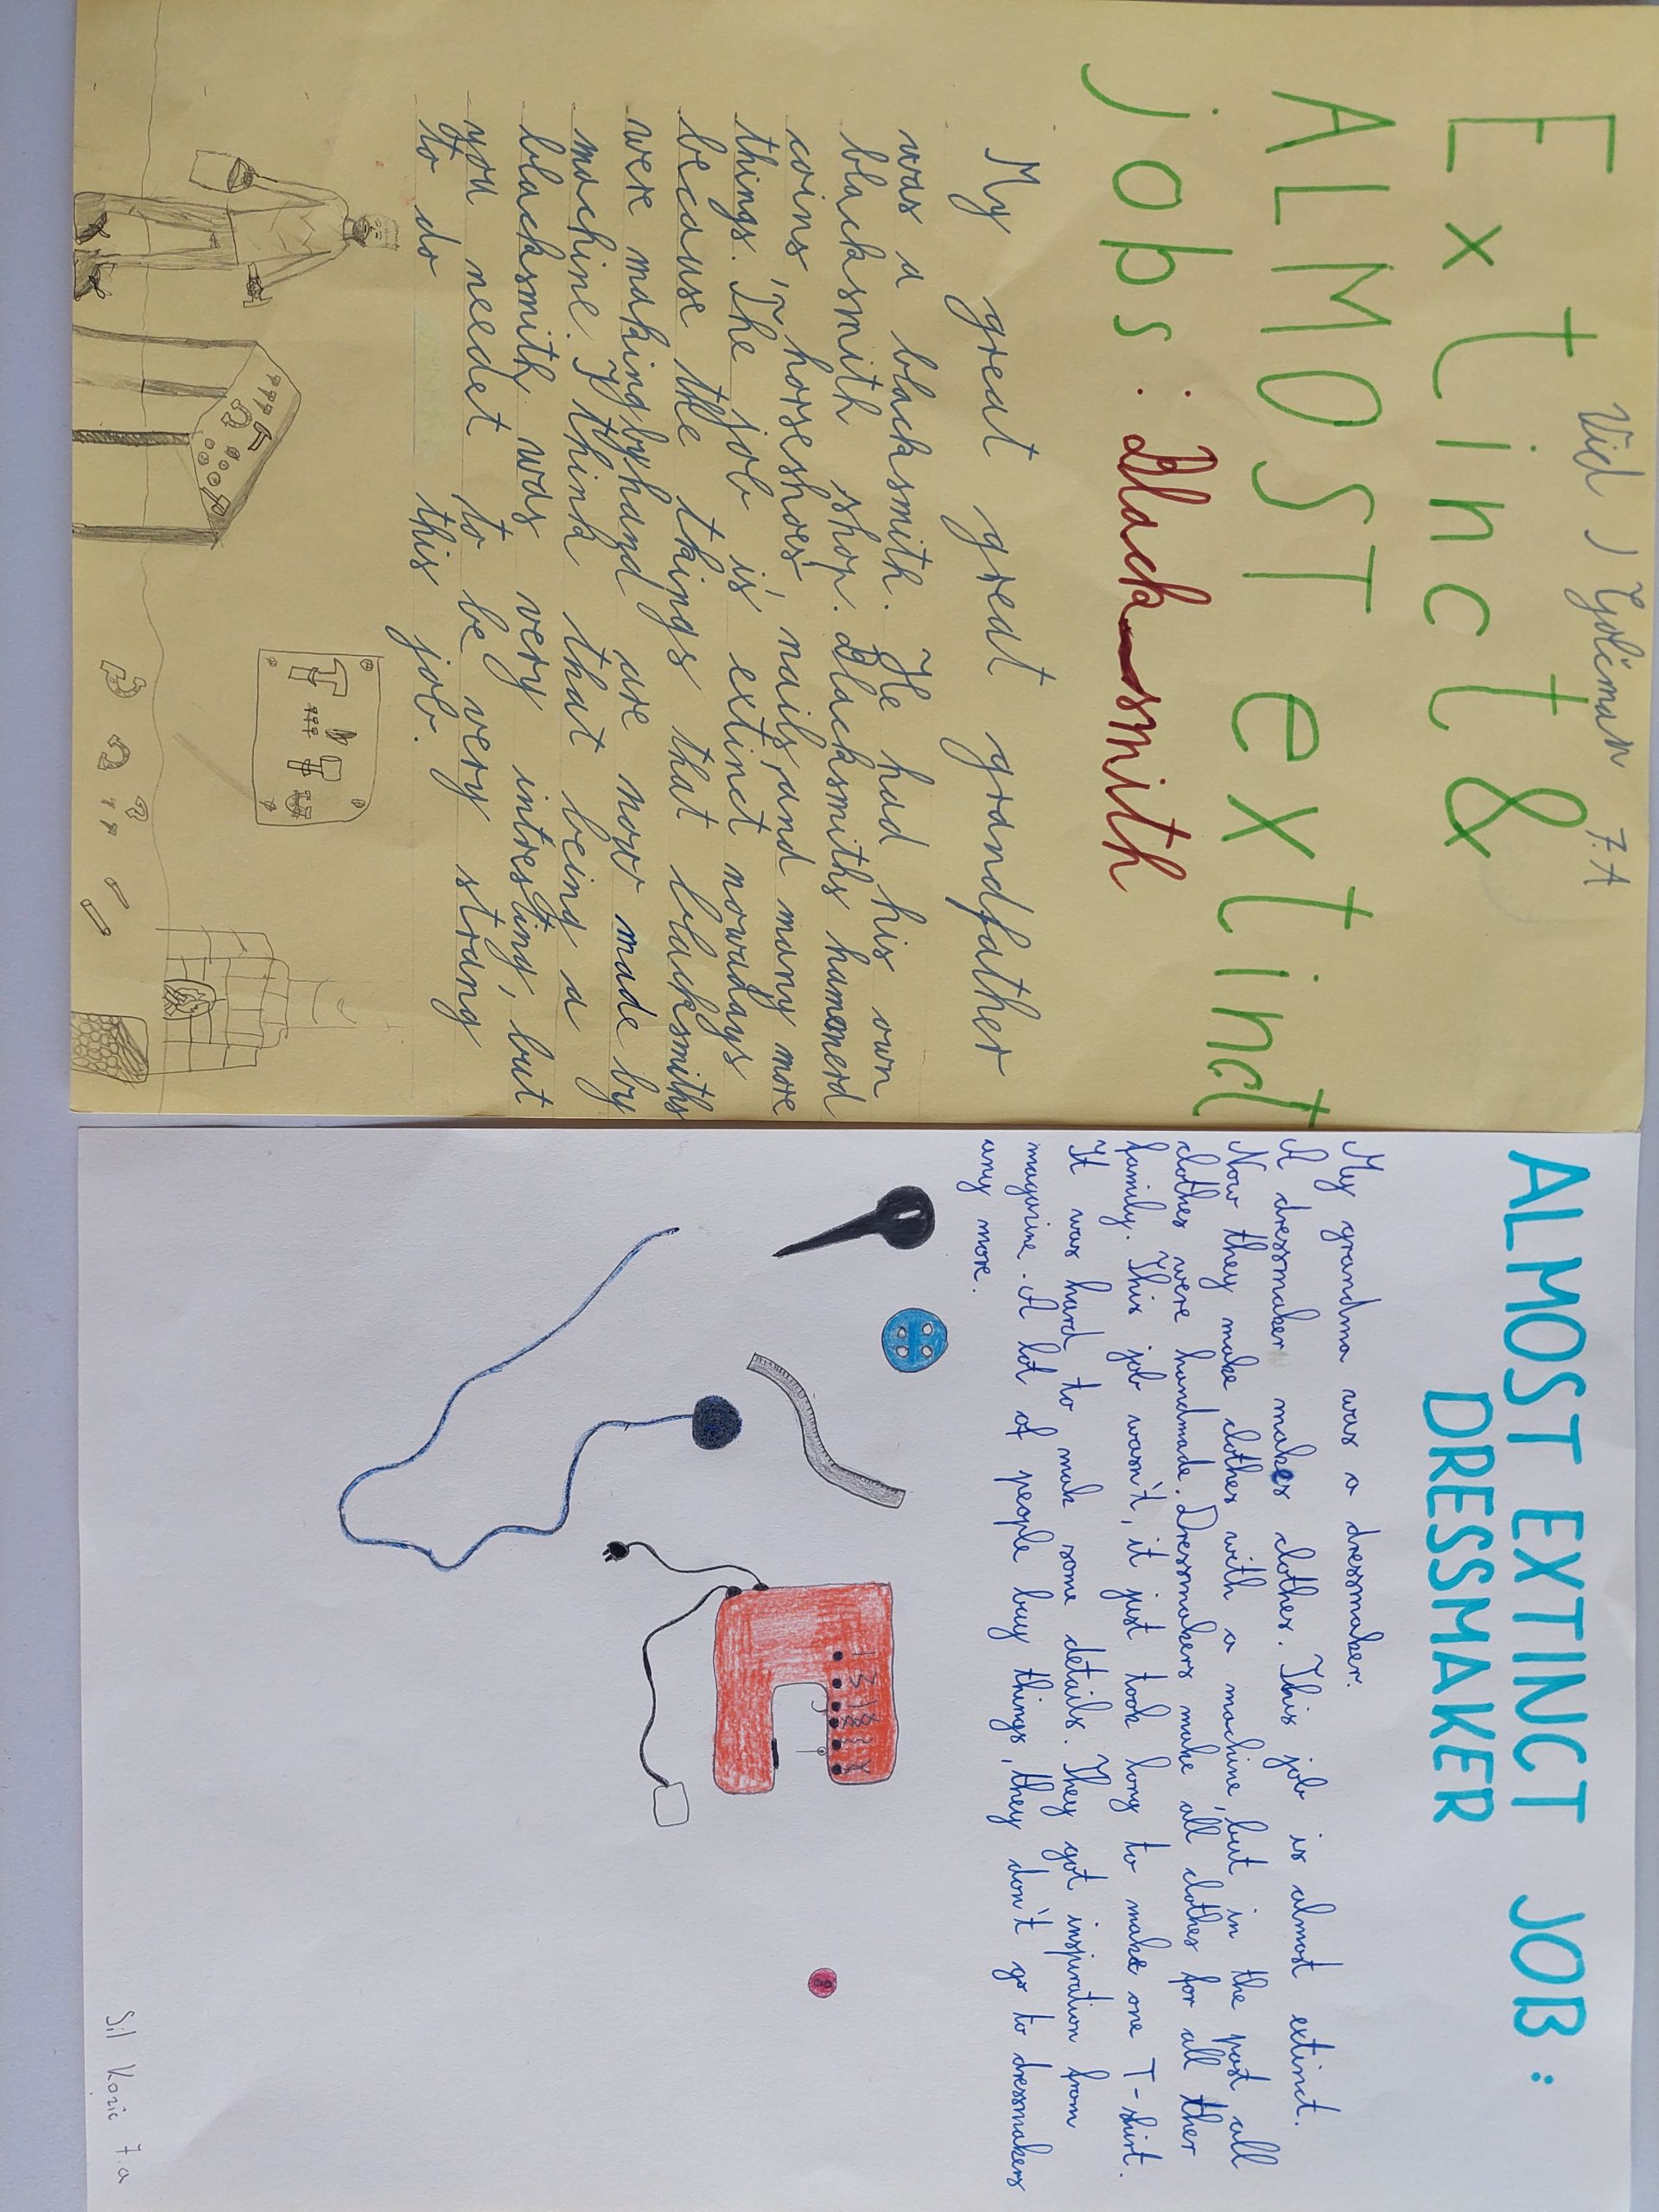 Vid J Golčman 7.A
Extinct &
ALMOST extinct
jobs: Blacksmith
My great great grandfather
was a blacksmith. He had his own
blacksmith shop. Blacksmiths hamemerd
coins, horseshoes, nails, and many more
things. The job is extinct nowadays
because the things that blacksmiths
were making by hand are now made by
machine. I think that being a
blacksmith was very intresting, but
you needet to be very strong
to do this job.
ALMOST EXTINCT JOB:
DRESSMAKER
My grandma was a dressmaker.
A dressmaker makes clothes. This job is almost extinct.
Now they make clothes with a machine, but in the past all
clothes were handmade. Dressmakers make all clothes for all ther
family. This job wasn't, it just took long to make one T-shirt.
It was hard to mak some details. They got inspiration from
magazine. A lot of people buy things, they don't go to dressmakers
any more.
Sil Kozic 7.a